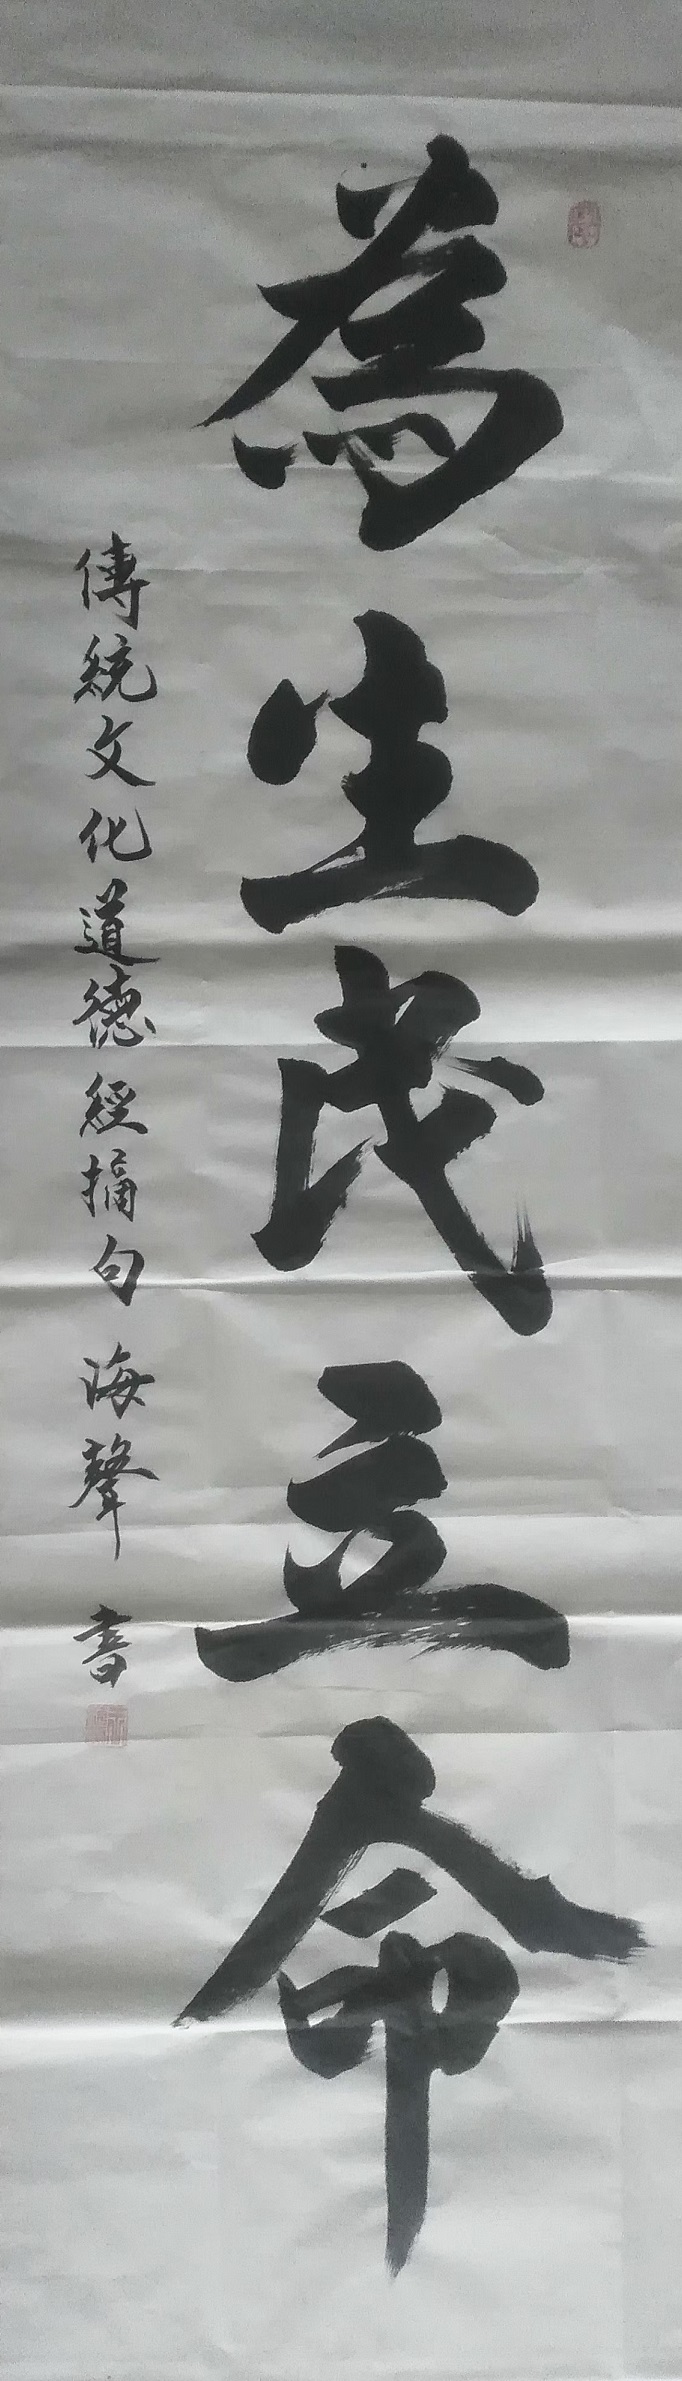 為生民立命
傳統文化道德經摘句 海聲 書